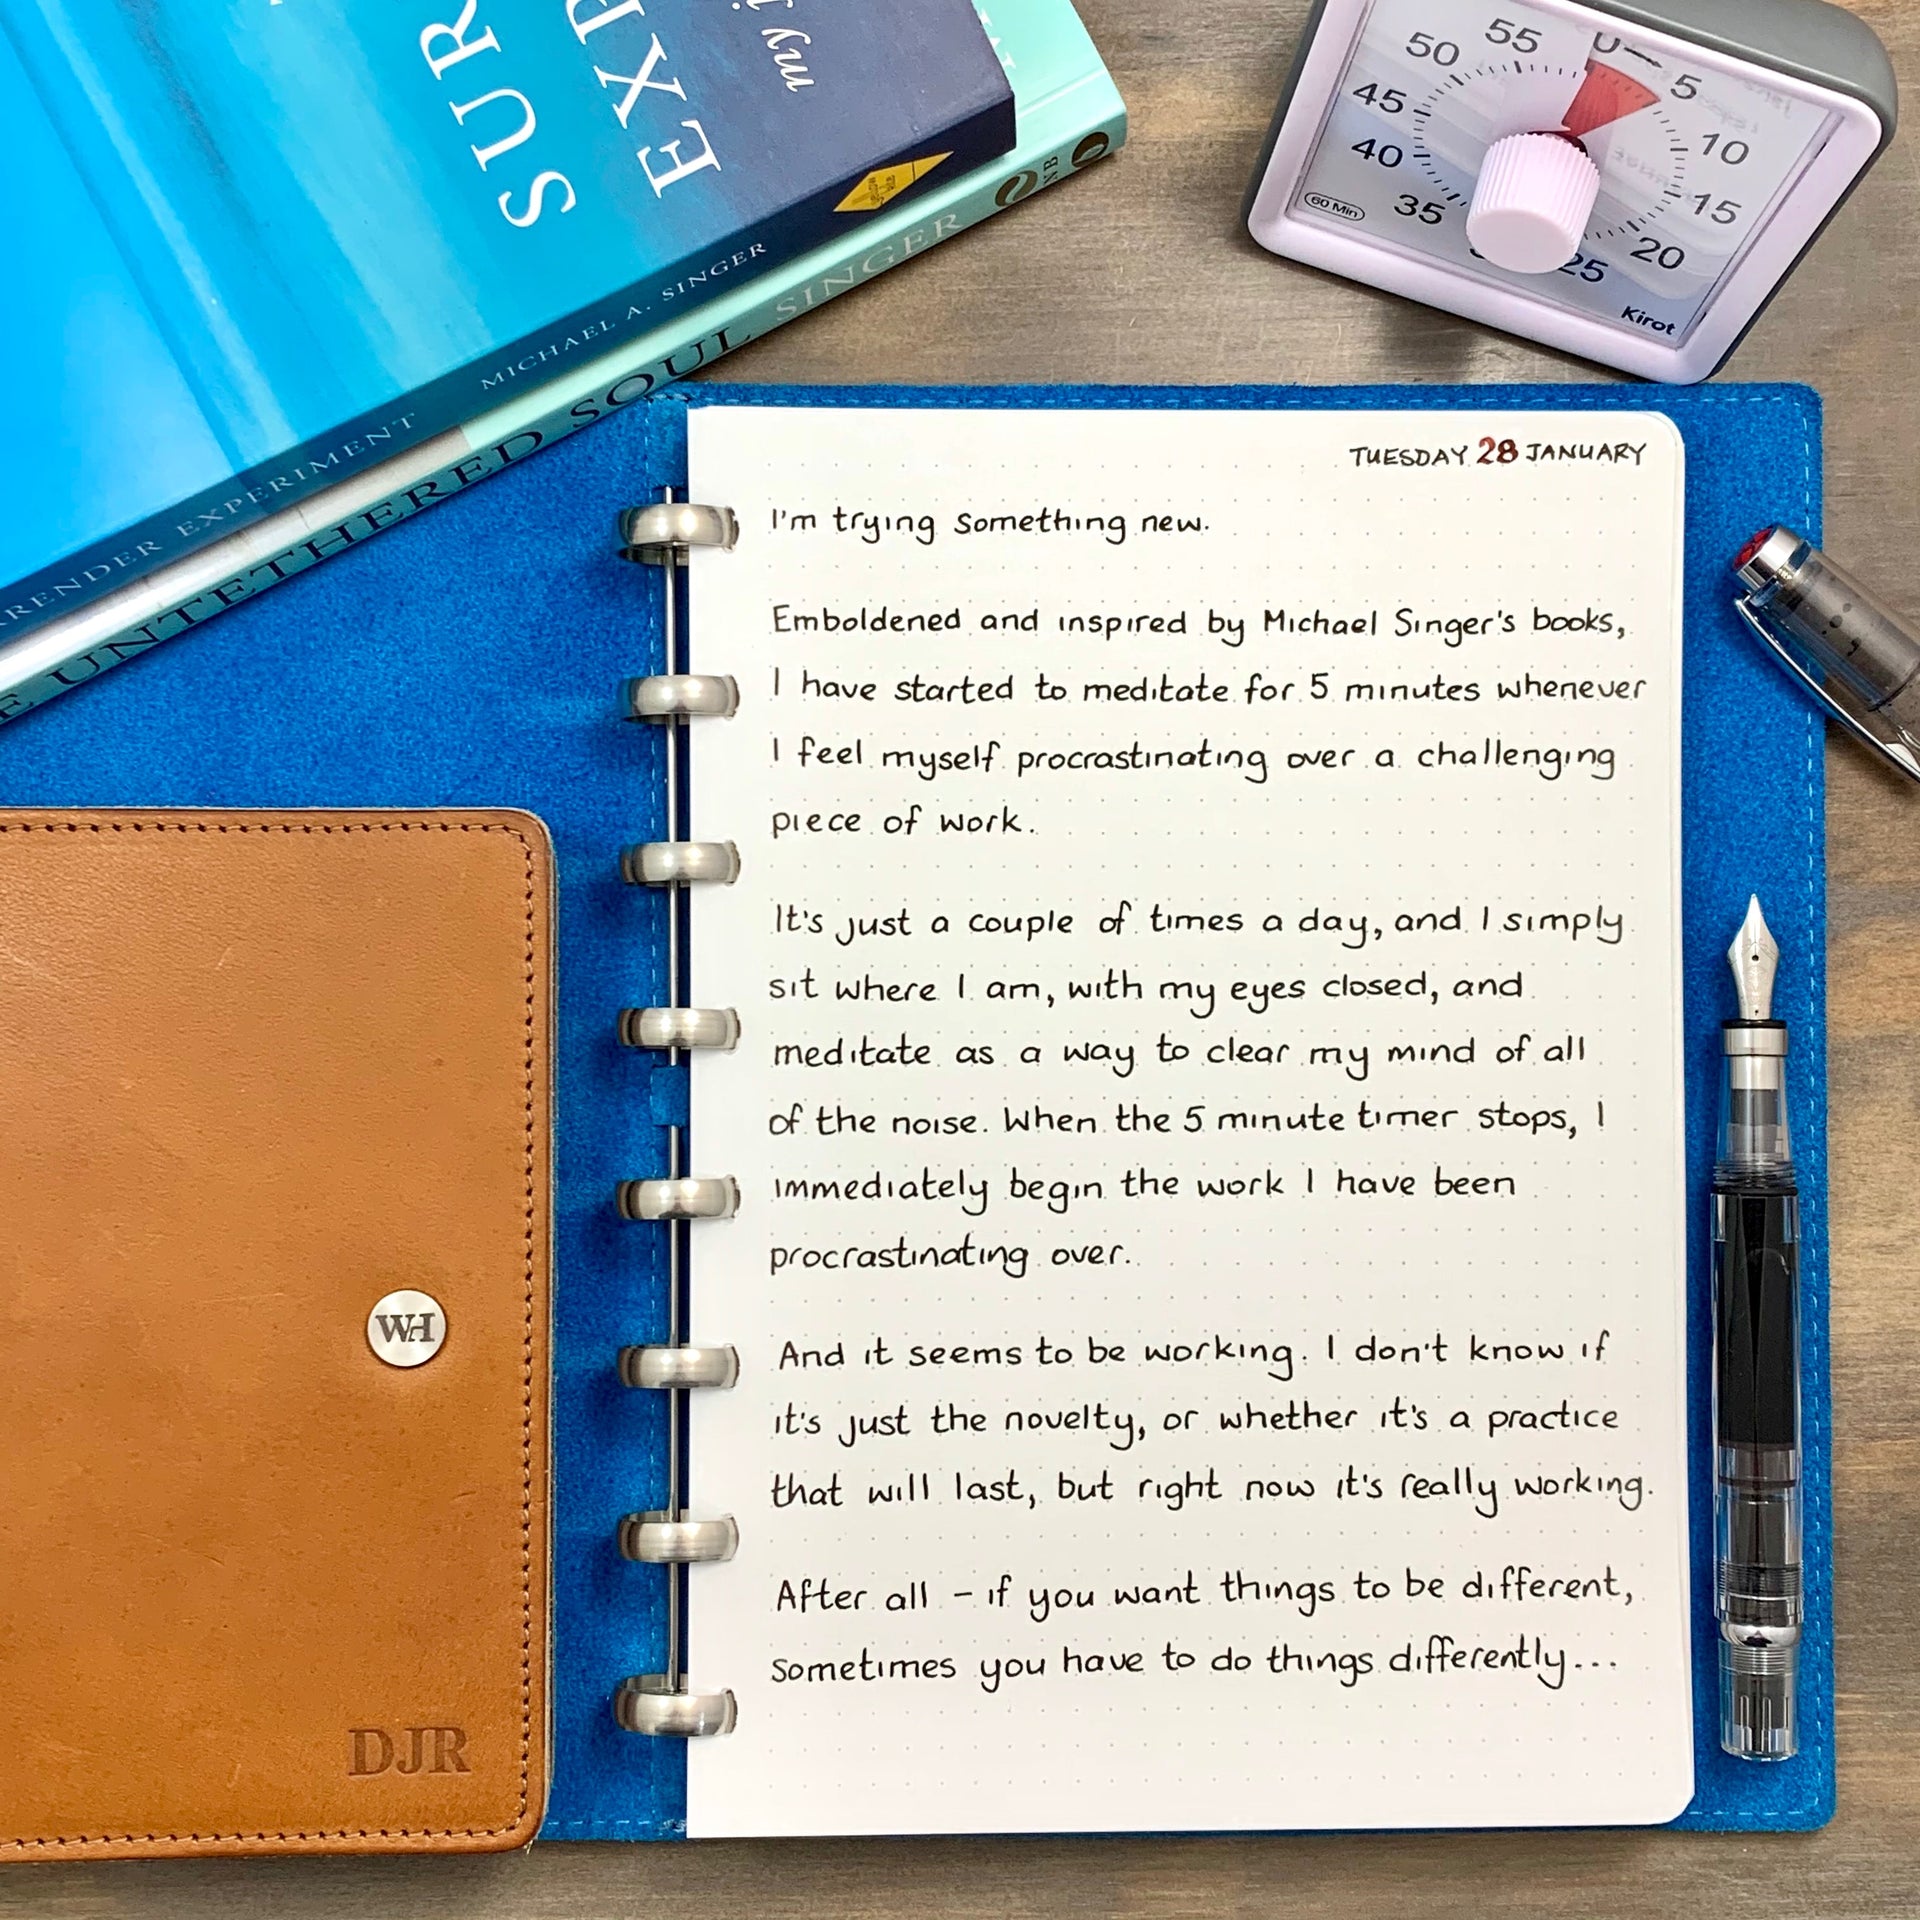 SUR
EXP
my j
MICHAEL A. SINGER
RENDER EXPERIMENT
SINGER
UNTETHERED SOUL
55
0
5
50
10
45
15
40
20
35
25
60 Min
Kirot
TUESDAY 28 JANUARY
I'm trying something new.
Emboldened and inspired by Michael Singer's books,
I have started to meditate for 5 minutes whenever
I feel myself procrastinating over a challenging
piece of work.
It's just a couple of times a day, and I simply
sit where I am, with my eyes closed, and
meditate as a way to clear my mind of all
of the noise. When the 5 minute timer stops, I
immediately begin the work I have been
procrastinating over.
And it seems to be working. I don't know if
it's just the novelty, or whether it's a practice
that will last, but right now it's really working.
After all – if you want things to be different,
sometimes you have to do things differently...
WH
DJR